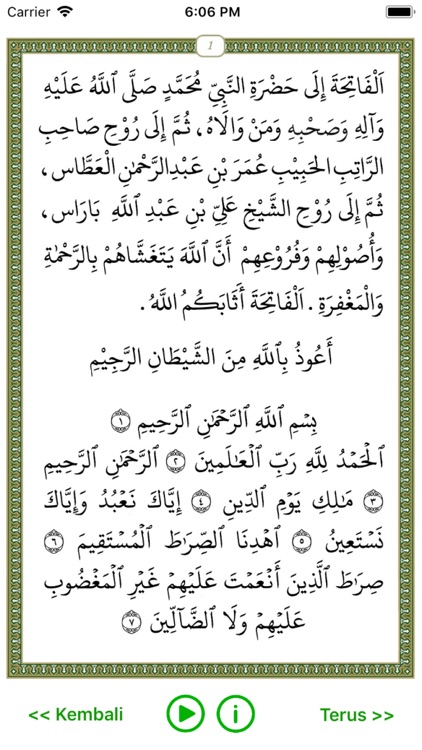 Carrier 6:06 PM
1
اَلْفَاتِحَةَ إِلَى حَضْرَةِ النَّبِيِّ مُحَمَّدٍ صَلَّى اللَّهُ عَلَيْهِ
وَآلِهِ وَصَحْبِهِ وَمَنْ وَالَاهُ، ثُمَّ إِلَى رُوْحِ صَاحِبِ
الرَّاتِبِ الحَبِيْبِ عُمَرَ بْنِ عَبْدِالرَّحْمٰنِ الْعَطَّاس،
ثُمَّ إِلَى رُوْحِ الشَّيْخِ عَلِيِّ بْنِ عَبْدِ اللَّهِ بَارَاس،
وَأُصُوْلِهِمْ وَفُرُوْعِهِمْ أَنَّ اللَّهَ يَتَغَشَّاهُمْ بِالرَّحْمَةِ
وَالْمَغْفِرَةِ. اَلْفَاتِحَةَ أَثَابَكُمُ اللَّهُ.
أَعُوذُ بِاللَّهِ مِنَ الشَّيْطَانِ الرَّجِيْمِ
بِسْمِ ٱللَّهِ ٱلرَّحْمَٰنِ ٱلرَّحِيمِ ١
ٱلْحَمْدُ لِلَّهِ رَبِّ ٱلْعَـٰلَمِينَ ٢ ٱلرَّحْمَٰنِ ٱلرَّحِيمِ
٣ مَـٰلِكِ يَوْمِ ٱلدِّينِ ٤ إِيَّاكَ نَعْبُدُ وَإِيَّاكَ
نَسْتَعِينُ ٥ ٱهْدِنَا ٱلصِّرَٰطَ ٱلْمُسْتَقِيمَ ٦
صِرَٰطَ ٱلَّذِينَ أَنْعَمْتَ عَلَيْهِمْ غَيْرِ ٱلْمَغْضُوبِ
عَلَيْهِمْ وَلَا ٱلضَّآلِّينَ ٧
<< Kembali i Terus >>